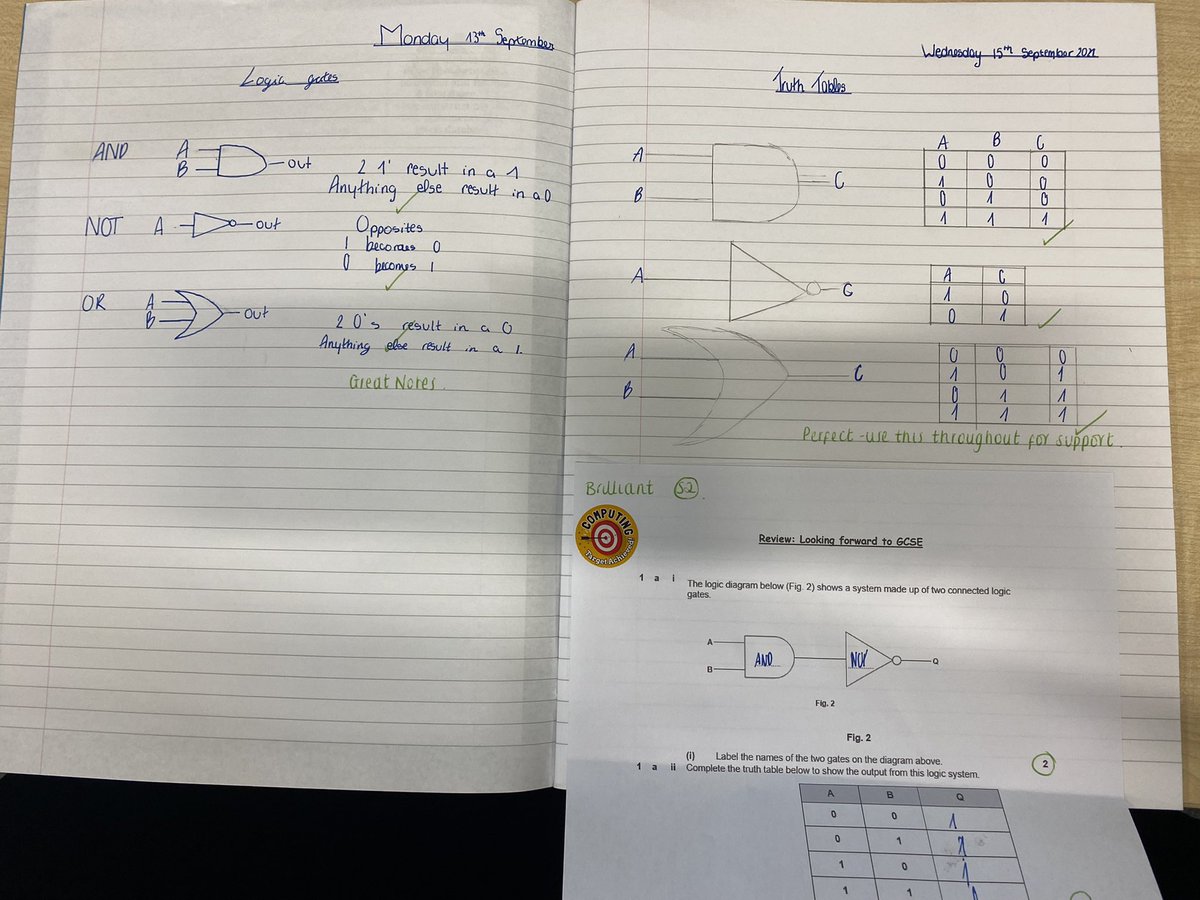 Monday 13th September
Logic gates
AND A B out
2 1' result in a 1
Anything else result in a 0
NOT A out
Opposites
1 becomes 0
0 becomes 1
OR A B out
2 0's result in a 0
Anything else result in a 1.
Great Notes.
Wednesday 15th September 2021
Truth Tables
A
B
C
A B C
0 0 0
1 0 0
0 1 0
1 1 1
A
C
A C
1 0
0 1
A
B
C
0 0 0
1 0 1
0 1 1
1 1 1
Perfect - use this throughout for support.
Brilliant S2.
COMPUTING
Target Achieved
Review: Looking forward to GCSE
1 a i The logic diagram below (Fig. 2) shows a system made up of two connected logic
gates.
A
B
AND
NOT
Q
Fig. 2
Fig. 2
(i) Label the names of the two gates on the diagram above.
2
1 a ii Complete the truth table below to show the output from this logic system.
A B Q
0 0 1
0 1 1
1 0 1
1 1